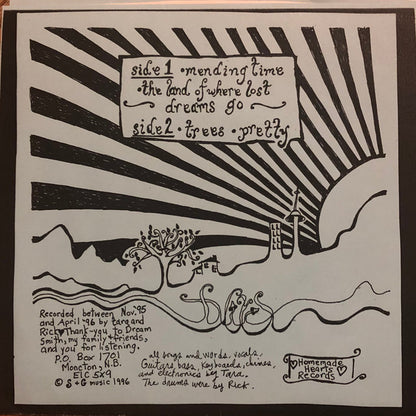 side 1 • mending time
• the land of where lost
dreams go
side 2 • trees • pretty
Recorded between Nov. '95
and April '96 by tara and
Rick. Thank-you to Dream
Smith, my family & friends,
and you for listening.
P.O. Box 1701
Moncton, N.B.
E1C 5X9
© S + G music 1996
all songs and words, vocals,
Guitars, bass, keyboards, chimes,
and electronics by Tara.
The drums were by Rick.
Homemade
Hearts
Records